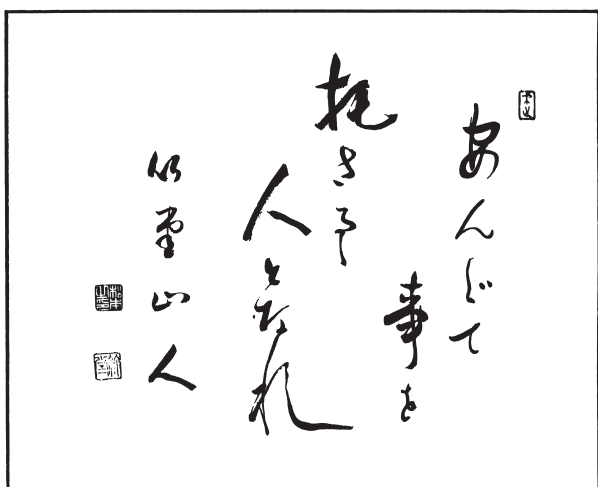 安んじて
事を
托さるゝ
人となれ
竹堂山人